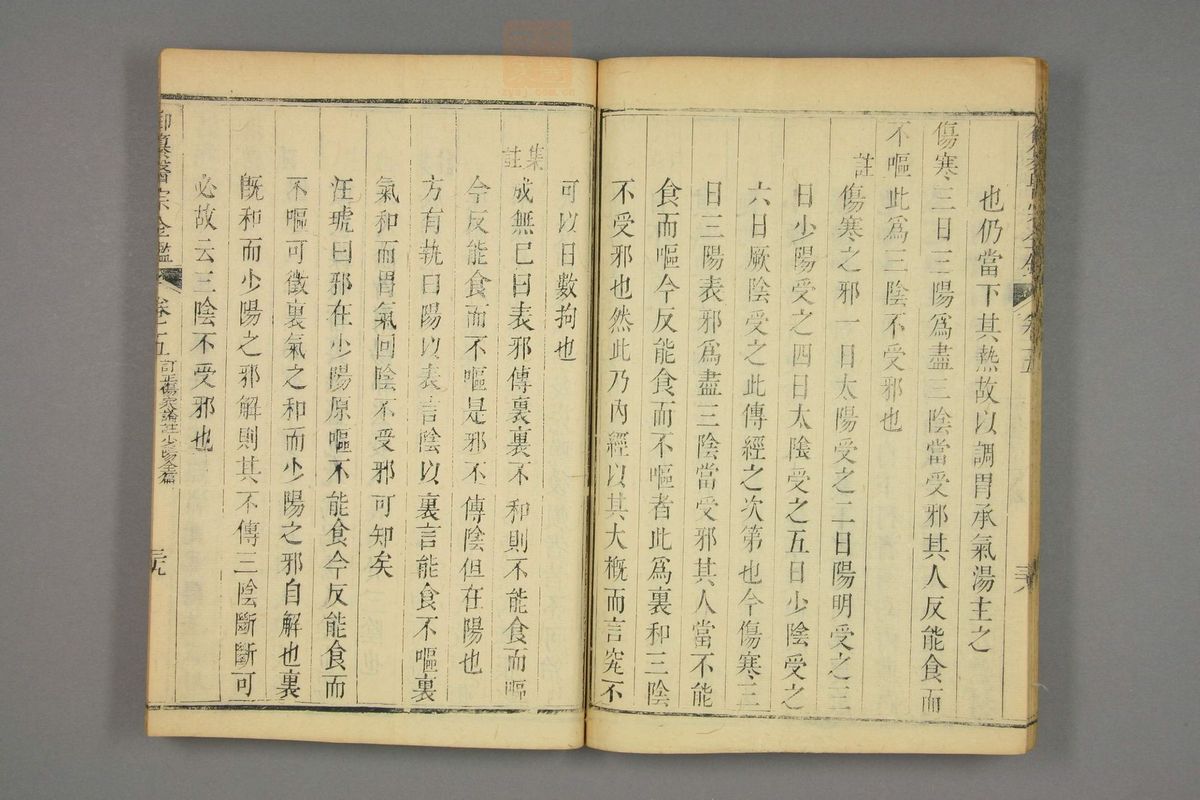 也仍當下其熱故以調胃承氣湯主之
傷寒三日三陽爲盡三陰當受邪其人反能食而
不嘔此爲三陰不受邪也
註傷寒之邪一日太陽受之二日陽明受之三
日少陽受之四日太陰受之五日少陰受之
六日厥陰受之此傳經之次第也今傷寒三
日三陽表邪爲盡三陰當受邪其人當不能
食而嘔今反能食而不嘔者此爲裏和三陰
不受邪也然此乃內經以其大槪而言究不
可以日數拘也
集註成無已曰表邪傳裏裏不和則不能食而嘔
今反能食而不嘔是邪不傳陰但在陽也
方有執曰陽以表言陰以裏言能食不嘔裏
氣和而胃氣回陰不受邪可知矣
汪琥曰邪在少陽原嘔不能食今反能食而
不嘔可徵裏氣之和而少陽之邪自解也裏
旣和而少陽之邪解則其不傳三陰斷斷可
必故云三陰不受邪也
御纂醫宗金鑑
訂正傷寒論註少陽全篇
三九